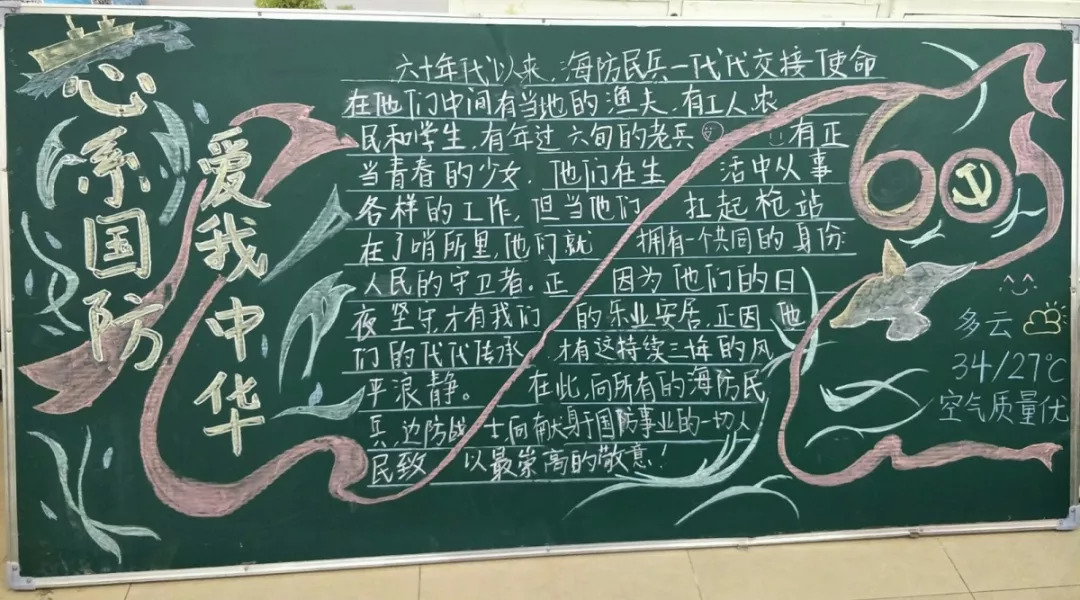 心系国防
爱我中华
六十年代以来,海防民兵一代代交接使命
在他们中间有当地的渔夫,有工人农
民和学生,有年过六旬的老兵 有正
当青春的少女,他们在生 活中从事
各样的工作,但当他们 扛起枪站
在了哨所里,他们就 拥有一个共同的身份:
人民的守卫者。正 因为他们的日
夜坚守,才有我们 的乐业安居,正因他
们的代代传承,才有这持续三十年的风
平浪静。 在此,向所有的海防民
兵,边防战士,向献身于国防事业的一切人
民致 以最崇高的敬意!
60
多云
34/27℃
空气质量优